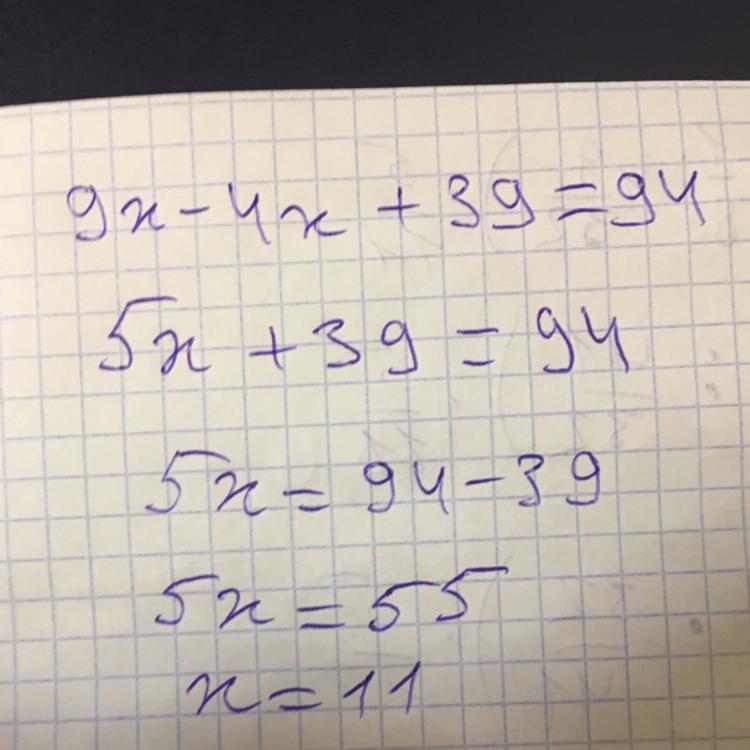 9x - 4x + 39 = 94
5x + 39 = 94
5x = 94 - 39
5x = 55
x = 11